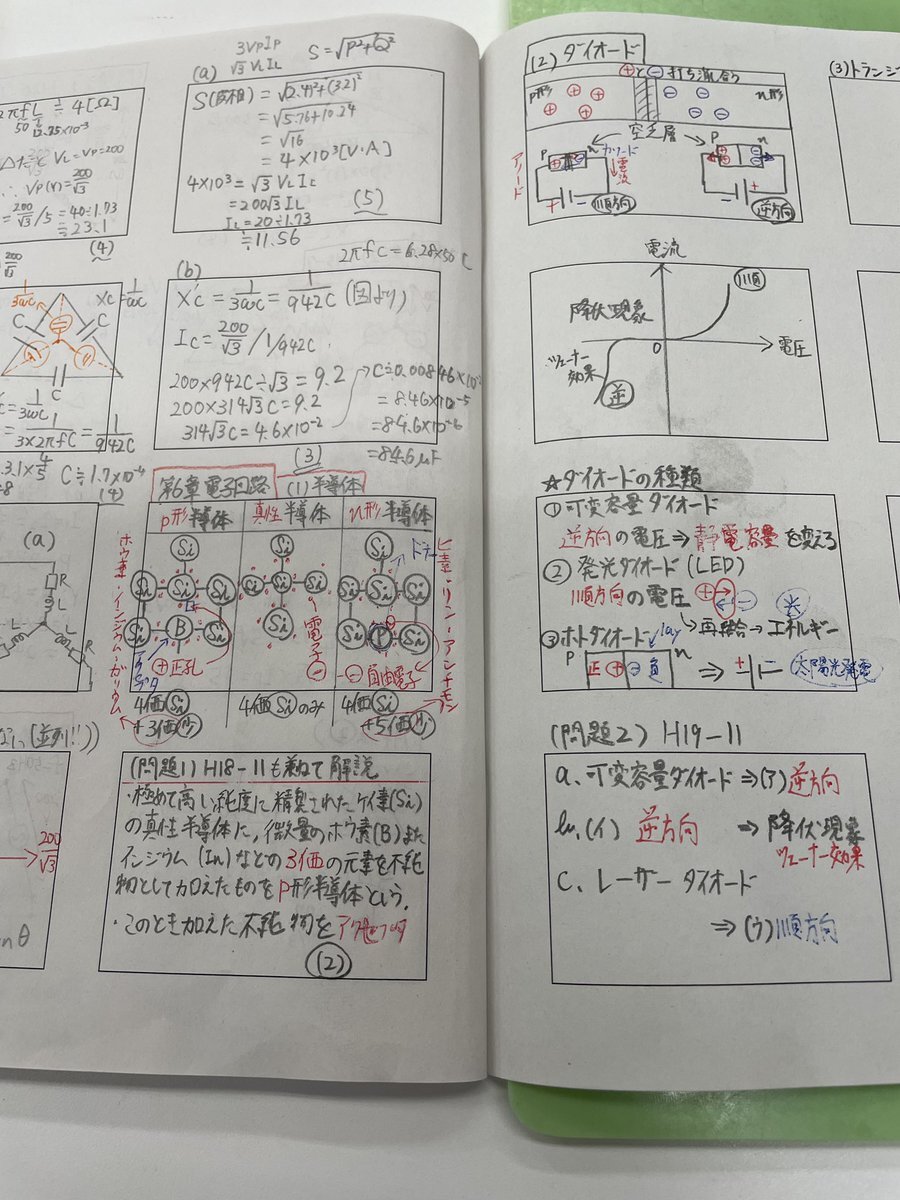 2πfL ≒ 4[Ω]
50
12.75×10⁻³
VL=VP=200
∴ VP(Y)=200/√3
=200/√3/5=40÷1.73
≒23.1
(4)
200/√3
1/3ωC
XC=1/ωC
C
C
C
=1/3ωC
=1/3×2πfC=1/942C
C≒1.7×10⁻⁴
(4)
(a)
R
L
L
L
R
(並列!!)
200/√3
3VPIP
(a) √3 VLIL
S=√P²+Q²
S(皮相)=√2.4²+(3.2)²
=√5.76+10.24
=√16
=4×10³[V·A]
4×10³=√3 VLIL
=200√3 IL
IL=20÷1.73
≒11.56
(5)
2πfC=6.28×50 C
(b)
X'C=1/3ωC=1/942C (図より)
IC=200/√3 /1/942C
200×942C÷√3=9.2
200×314√3C=9.2
314√3C=4.6×10⁻²
C≒0.00846×10⁻²
=8.46×10⁻⁵
=84.6×10⁻⁶
=84.6μF
(3)
第6章電子回路 (1)半導体
p形半導体 真性半導体 n形半導体
ホウ素・インジウム・ガリウム
ヒ素・リン・アンチモン
Si Si Si
Si Si Si Si Si Si Si Si Si
Si B Si Si Si P Si
アクセプタ
ドナー
⊕正孔
電子⊖
⊖自由電子
4価Si 4価Siのみ 4価Si
+3価 +5価
(問題1) H18-11も兼ねて解説
・極めて高い純度に精製されたケイ素(Si)
の真性半導体に,微量のホウ素(B)また
インジウム(In)などの3価の元素を不純
物として加えたものをP形半導体という.
・このとき加えた不純物をアクセプタ
(2)
(2) ダイオード
⊕と⊖打ち消し合う
p形 n形
空乏層
P n カソード
アノード
電流
順方向
P n
逆方向
電流
順
降伏現象
0
電圧
ツェナー
効果
逆
☆ダイオードの種類
①可変容量ダイオード
逆方向の電圧⇒静電容量を変える
②発光ダイオード(LED)
順方向の電圧 ⊕ ⊖ 光
再結合→エネルギー
③ホトダイオード
P 正⊕⊖負 n ⇒ + − 太陽光発電
(問題2) H19-11
a、可変容量ダイオード⇒(ア)逆方向
b、(イ) 逆方向 ⇒降伏現象
ツェナー効果
c、レーザーダイオード
⇒(ウ)順方向
(3)トランジ